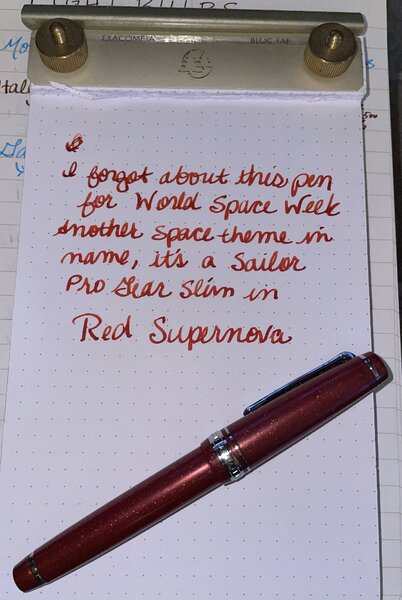 EXACOMPTA
BLOC-FAF
I forgot about this pen
for World Space Week
another space theme in
name, it's a Sailor
Pro Gear Slim in
Red Supernova